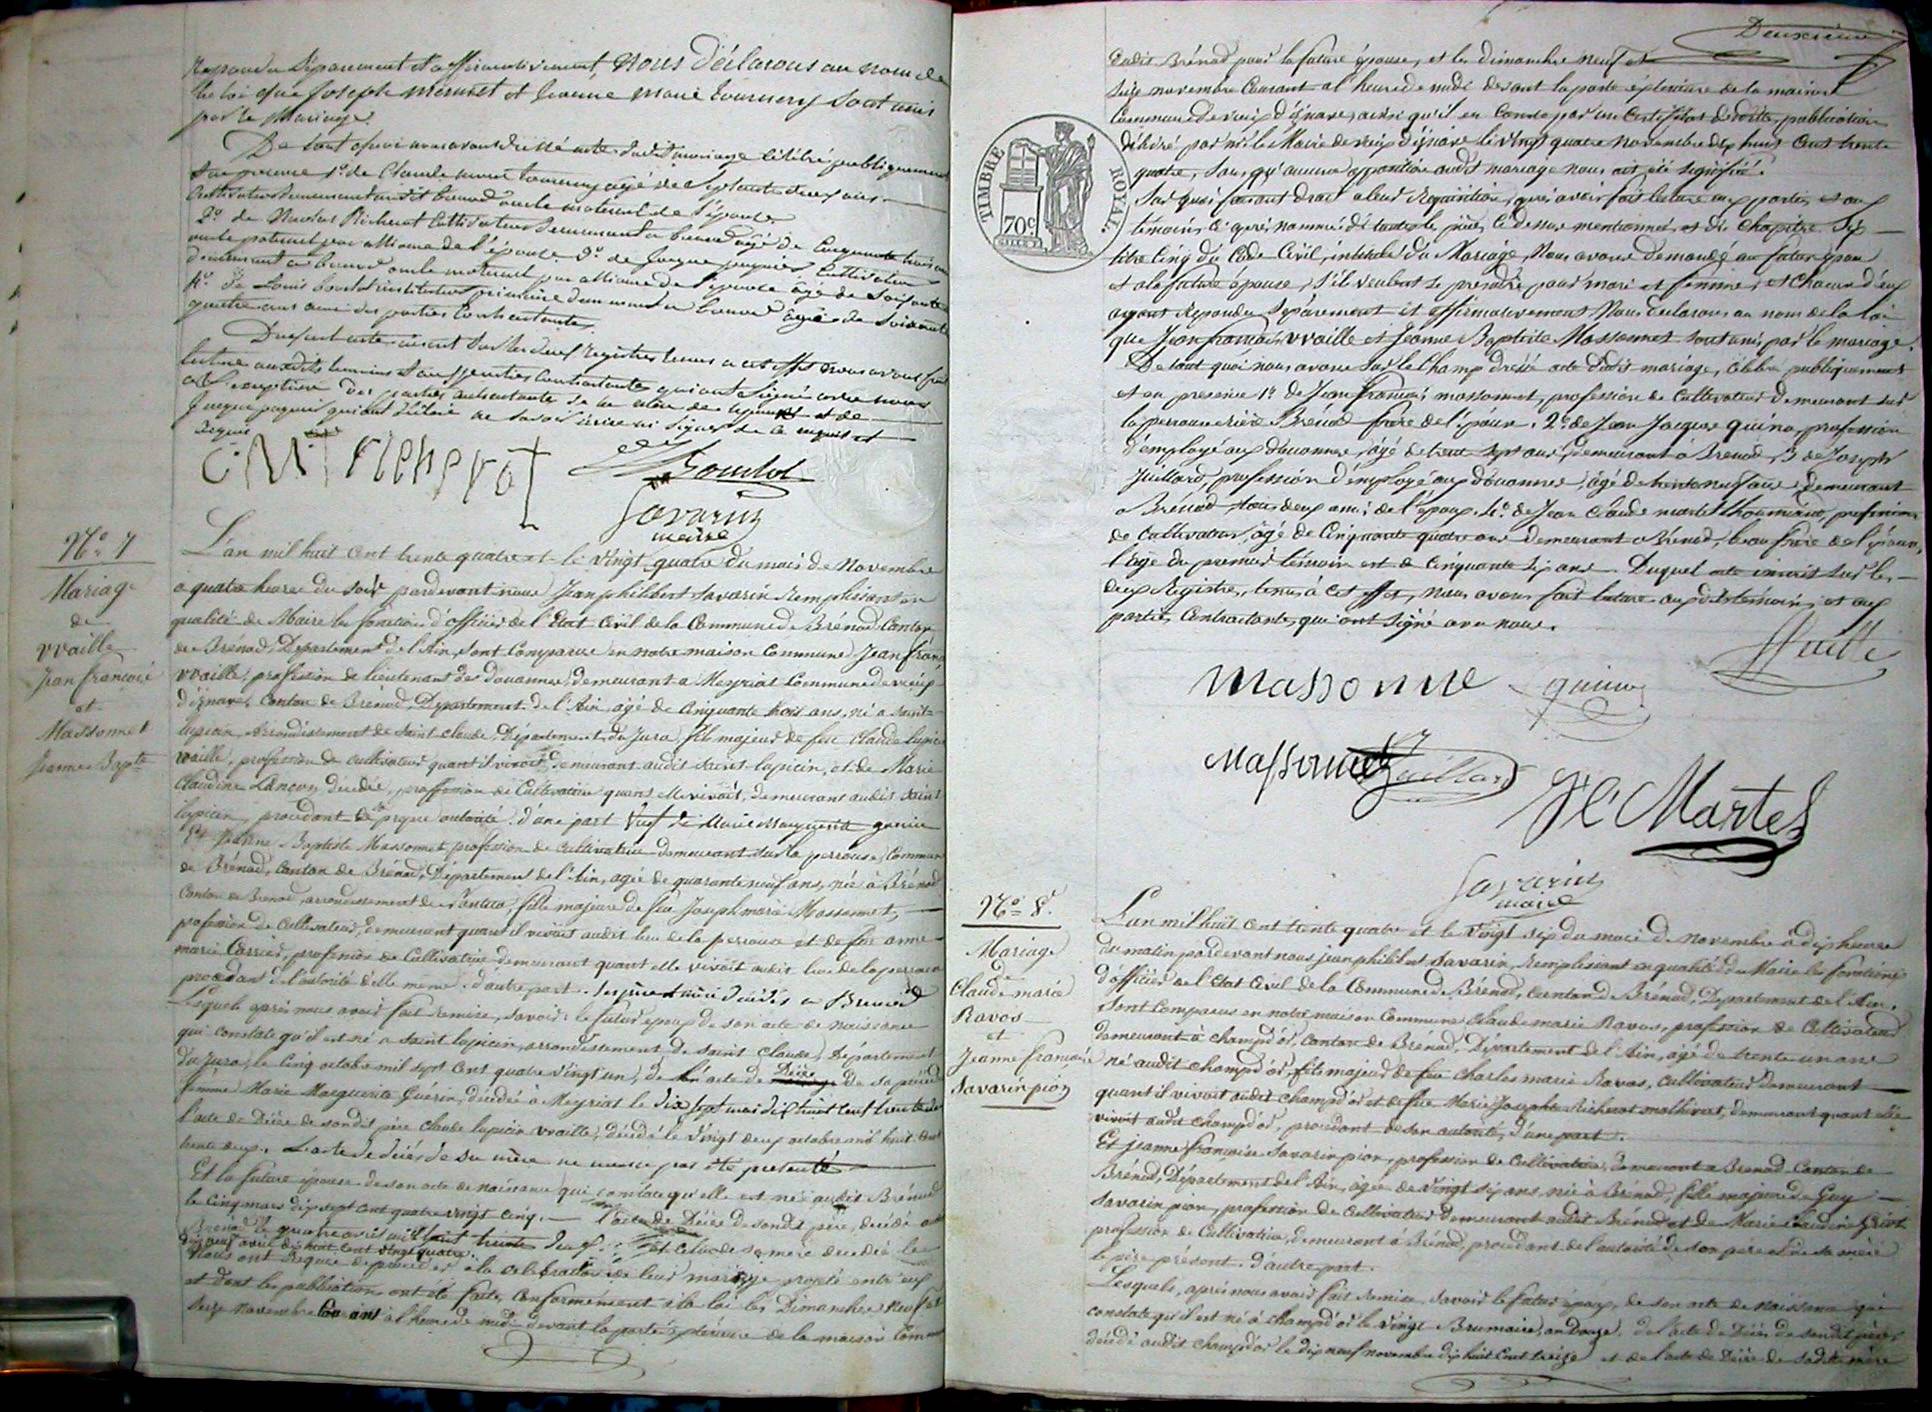 Repondu Séparement et affirmativement, Nous Déclarons au nom de
la loi que Joseph mermet et Jeanne marie tournery sont unis
par le Mariage.
De tout quoi nous avons dressé acte dudit mariage célébré publiquement
En presence 1° de Claude tournery agé de Septante deux ans
Cultivateur Demeurant audit brenod oncle maternel de l'épouse
2° de Richerot Cultivateur Demeurant a brenod agé de Cinquante trois ans
oncle paternel par alliance de l'épouse 3° de Jacque Cultivateur
demeurant a brenod oncle maternel par alliance de l'épouse agé de Soixante
4° de Louis instituteur primaire demeurant a brenod agé de Soixante
quatre ans ami des parties Contractantes.
Duquel acte inscrit Sur les deux registres tenus a cet effet nous avons fait
lecture auxdits temoins et aux parties Contractantes qui ont Signé avec nous
a l'exeption des parties Contractantes de et de
Jacque qui ont déclaré ne Savoir écrire ni Signer de ce requis et
Savarin
maire
N° 7
Mariage
de
vvaille
Jean françois
et
Massonnet
Jeanne Bapte
L'an mil huit Cent trente quatre et le vingt quatre du mois de Novembre
a quatre heures du Soir pardevant nous Jean philibert Savarin Remplissant en
qualité de Maire les fonctions d'officier de l'Etat Civil de la Commune de Brénod Canton
de Brénod, Departement de l'Ain, sont Comparus en notre maison Commune Jean franç
vvaille, profession de lieutenant des douannes, demeurant a Meyriat Commune de vieux
d'izenave, Canton de Brénod, Departement de l'Ain, agé de Cinquante trois ans, né a Saint-
lupicin, arrondissement de Saint Claude, Département du Jura, fils majeur de feu Claude lupicin
vvaille, profession de cultivateur quant il vivoit, demeurant audit Saint-lupicin, et de Marie
Claudine Lançon, décédée, proffession de Cultivatrice quant elle vivoit, demeurant audit Saint
lupicin, procédant de propre autorité. d'une part veuf de Marie Marguerite guerin
Et Jeanne-Baptiste Massonnet profession de Cultivatrice demeurant sur la perrouse, Commune
de Brénod, Canton de Brénod, Département de l'Ain, agée de quarante neuf ans, née à Brénod
Canton de Brenod, arrondissement de Nantua, fille majeure de feu Joseph marie Massonnet,
profession de Cultivateur, demeurant quant il vivoit audit lieu de la perrouse et de feue anne
marie Carrier, profession de Cultivatrice demeurant quant elle vivoit audit lieu de la perrouse
procédant de l'autorité d'elle même. d'autre part. Ses père et mère décédés a Brenod
Lesquels après nous avoir fait remise, Savoir: le futur époux de son acte de naissance
qui constate qu'il est né a Saint lupicin, arrondissement de Saint Claude, Département
du Jura, le Cinq octobre mil sept Cent quatre vingt un, de l'acte de Décès de sa précéd
femme Marie Marguerite Guérin, décédée à Meyriat le dix sept mai dix huit cent trente
l'acte de Décès de sondit père Claude lupicin vvaille, décédé le vingt deux octobre mil huit cent
trente deux. L'acte de décès de sa mère ne nous a pas été présenté
Et la future épouse de son acte de naissance qui constate qu'elle est né audit Brénod
le Cinq mars dix sept cent quatre vingt cinq. l'acte de Décès de sondit père, décédé audit
Brenod le quatre avril mil huit trente neuf. et celui de sa mère decedée le
dix neuf avril dix huit cent vingt quatre.
Nous ont Requis de procéder à la celebration de leur mariage projeté entr'eux
et dont les publications ont été faites Conformément à la loi les Dimanches neuf et
seize novembre Courant à l'heure de midi devant la porte éxtérieure de la maison Commune
Deuxieme
dudit Brénod pour la future épouse, et les dimanches neuf et
Seize novembre Courant a l'heure de midi devant la porte éxterieure de la mairie
Commune de vieux d'izenave, ainsi qu'il en Conste par un Certificat desdites publications
délivré par mr le Maire de vieux d'izenave le vingt quatre Novembre dix huit Cent trente
quatre, sans qu'aucune opposition audit mariage nous ait été Signifié.
TIMBRE ROYAL.
70 C
Sur quoi faisant droit a leur Requisition, après avoir fait lecture aux parties et aux
témoins ci après nommés de toutes les pièces Ci dessus mentionnés et du Chapitre Six
titre Cinq du Code Civil, intitulé du Mariage, Nous avons Demandé au futur époux
et a la future épouse, s'il veulent Se prendre pour mari et femme, et Chacun d'eux
ayant Répondu Séparément et affirmativement Nous Déclarons au nom de la loi
que Jean françois vvaille et Jeanne Baptiste Massonnet sont unis par le mariage.
De tout quoi nous avons Sur le Champ dressé acte dudit mariage, célébré publiquement
et en presence 1° de Jean françois massonnet, profession de Cultivateur demeurant sur
la perrouse rière Brénod frère de l'épouse. 2° de Jean Jacques quinio, profession
d'employé aux douannes, âgé de trente Sept ans, demeurant à Brenod, 3 de Joseph
Juillard, profession d'employé aux douannes, âgé de trente neuf ans demeurant
a Brénod tous deux amis de l'époux. 4° de Jean Claude martel thoumieux, profession
de Cultivateur, âgé de Cinquante quatre ans demeurant a Brénod, beau frère de l'épouse,
l'âge du premier témoin est de Cinquante Six ans. Duquel acte inscrit sur les
deux Registres, tenus à cet effet, Nous avons fait lecture auxdits témoins et aux
parties Contractantes, qui ont Signé avec nous.
Massonne
Massonnet
Juillard
JC Martel
Savarin
maire
N° 8.
Mariage
de
Claude marie
Ravos
et
Jeanne françoise
Savarin pion
L'an mil huit Cent trente quatre et le vingt six du mois de novembre à dix heures
du matin pardevant nous jean philibert Savarin, Remplissant en qualité de Maire les fonctions
d'officier de l'Etat Civil de la Commune de Brénod, Canton de Brénod, Departement de l'Ain.
Sont Comparus en notre maison Commune Claude marie Ravos, profession de Cultivateur
demeurant à champd'or, Canton de Brénod, Département de l'Ain, agé de trente un ans
né audit champd'or, fils majeur de feu Charles marie Ravos, Cultivateur demeurant
quant il vivoit audit champd'or et de feue Marie Josephte Richerot mathieret, demeurant quant Elle
vivoit audit champd'or, procédant de son autorité, d'une part.
Et jeanne françoise Savarin pion, profession de Cultivatrice, demeurant a Brenod Canton de
Brénod, Département de l'Ain, âgée de vingt six ans, née à Brénod, fille majeure de Guy
Savarin pion, profession de Cultivateur demeurant audit Brénod et de Marie Claudine
profession de Cultivatrice, demeurant a Brénod, procédant de l'autorité de son père et de sa mère
le père présent. d'autre part.
Lesquels, après nous avoir fait Remise, Savoir le futur époux, de son acte de naissance qui
constate qu'il est né à champd'or le vingt Brumaire, an Douze. de l'acte de Décès de sondit père
décédé audit champd'or le dix neuf novembre dix huit Cent treize, et de l'acte de Décès de sadite mère